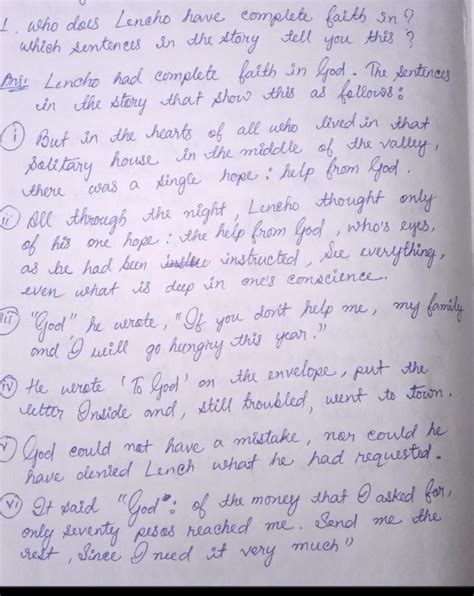 1. Who does Lencho have complete faith in?
which sentences in the story tell you this?
Ans: Lencho had complete faith in God. The sentences
in the story that show this as follows:
(i) But in the hearts of all who lived in that
solitary house in the middle of the valley,
there was a single hope: help from God.
(ii) All through the night, Lencho thought only
of his one hope: the help from God, who's eyes,
as he had been instructed, see everything,
even what is deep in one's conscience.
(iii) "God", he wrote, "If you don't help me, my family
and I will go hungry this year."
(iv) He wrote 'To God' on the envelope, put the
letter Inside and, still troubled, went to town.
(v) God could not have a mistake, nor could he
have denied Lench what he had requested.
(vi) It said "God": of the money that I asked for,
only seventy pesos reached me. Send me the
rest, Since I need it very much"